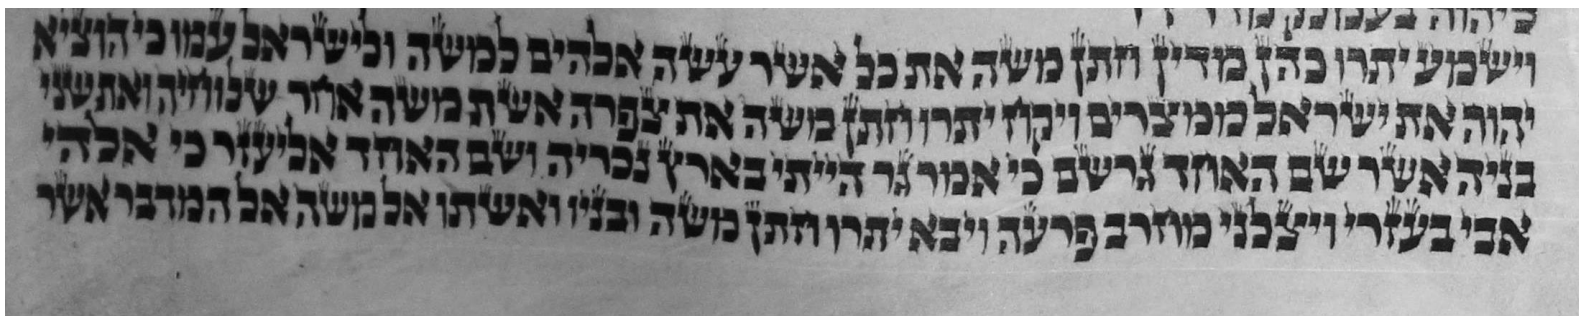 ליהוה בעמלק מדר דר
וישמע יתרו כהן מדין חתן משה את כל אשר עשה אלהים למשה ולישראל עמו כי הוציא
יהוה את ישראל ממצרים ויקח יתרו חתן משה את צפרה אשת משה אחר שלוחיה ואת שני
בניה אשר שם האחד גרשם כי אמר גר הייתי בארץ נכריה ושם האחד אליעזר כי אלהי
אבי בעזרי ויצלני מחרב פרעה ויבא יתרו חתן משה ובניו ואשתו אל משה אל המדבר אשר